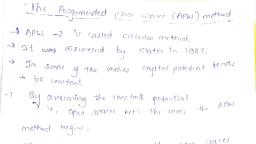 The Augmented plane wave (APW) method
→ APW → is called cellular method,
→ It was discovered by slater in 1937.
→ In some of the crystal potential tends
to be constant.
→ By assuming the constant potential
in open spaces betn the ions, the APW
method begins.